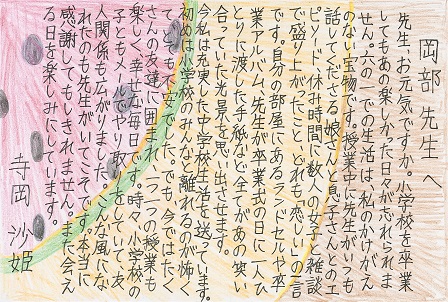 岡部先生へ
先生、お元気ですか。小学校を卒業
してもあの楽しかった日々が忘れられま
せん。六の一での生活は、私のかけがえ
のない宝物です。授業中に先生がいつも
話してくださる娘さんと息子さんとのエ
ピソード、休み時間に数人の女子で雑談
で盛り上がったこと、どれも「恋しい」の一言
です。自分の部屋にあるランドセルや卒
業アルバム、先生が卒業式の日に一人ひ
とりに渡した手紙など全てがあの笑い
合っていた光景を思い出させます。
今私は充実した中学校生活を送っています。
初めは小学校のみんなと離れるのが怖く
て、とても不安でした。でも、今ではたく
さんの友達に囲まれ、一つ一つの授業も
楽しく、幸せな毎日です。時々、小学校の
子ともメールでやり取りをしていて、友
人関係も広がりました。こんな風にな
れたのも先生がいてこそです。本当に
感謝してもしきれません。また会え
る日を楽しみにしています。
寺岡沙姫